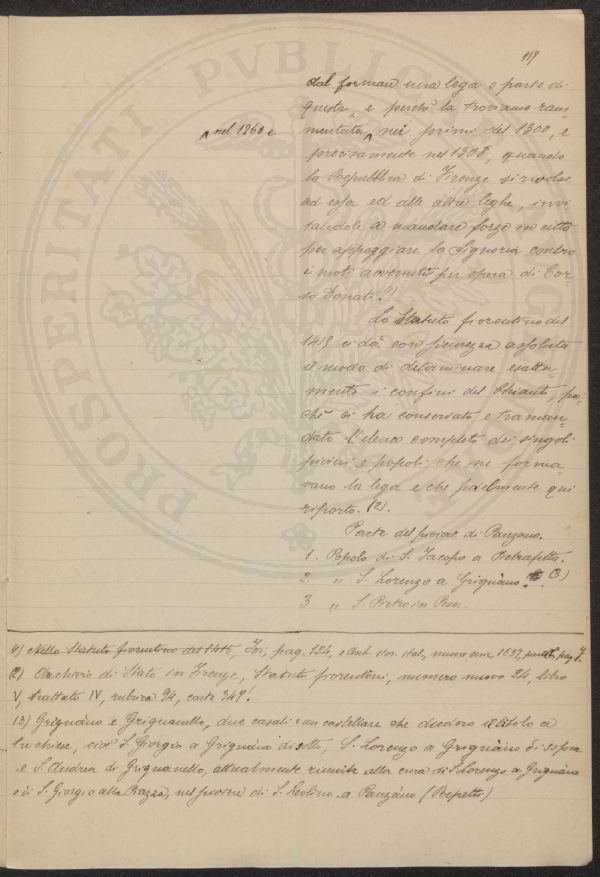 117
dal formare una lega o parte di
questa, e perchè la troviamo ram-
mentata nei primi del 1300, e
nel 1260 e
precisamente nel 1308, quando
la Repubblica di Firenze si rivolse
ad essa ed alle altre leghe, invi-
tandole a mandare forze in città
per appoggiare la Signoria contro
i moti avvenuti per opera di Cor-
so Donati. (1)
Lo Statuto fiorentino del
1415 ci dà con sicurezza assoluta
il modo di determinare esatta-
mente i confini del Chianti, poi-
chè ci ha conservato e traman-
dato l'elenco completo dei singoli
pivieri e popoli che ne forma-
vano la lega e che fedelmente qui
riporto. (2).
Parte del piviere di Panzano.
1. Popolo di S. Jacopo a Pietrafitta.
2. " S. Lorenzo a Grignàno. (3)
3 " S. Pietro in Pesa.
1) Nello Statuto fiorentino del 1415, Ivi, pag. 124, e Arch. stor. ital., nuova serie, 1857,
2) Archivio di Stato in Firenze, Statuti fiorentini, numero nuovo 24, libro
V, trattato IV, rubrica 94, carte 347.
(3) Grignàno e Grignanello, due casali e un castellare che diedero il titolo a
tre chiese, cioè S. Giorgio a Grignàno di sotto, S. Lorenzo a Grignàno di sopra
e S. Andrea di Grignanello, attualmente riunite alla cura di S. Lorenzo a Grignàno
e di S. Giorgio alla Piazza, nel piviere di S. Leolino a Panzàno (Repetti)
PROSPERITATI PVBLICAE